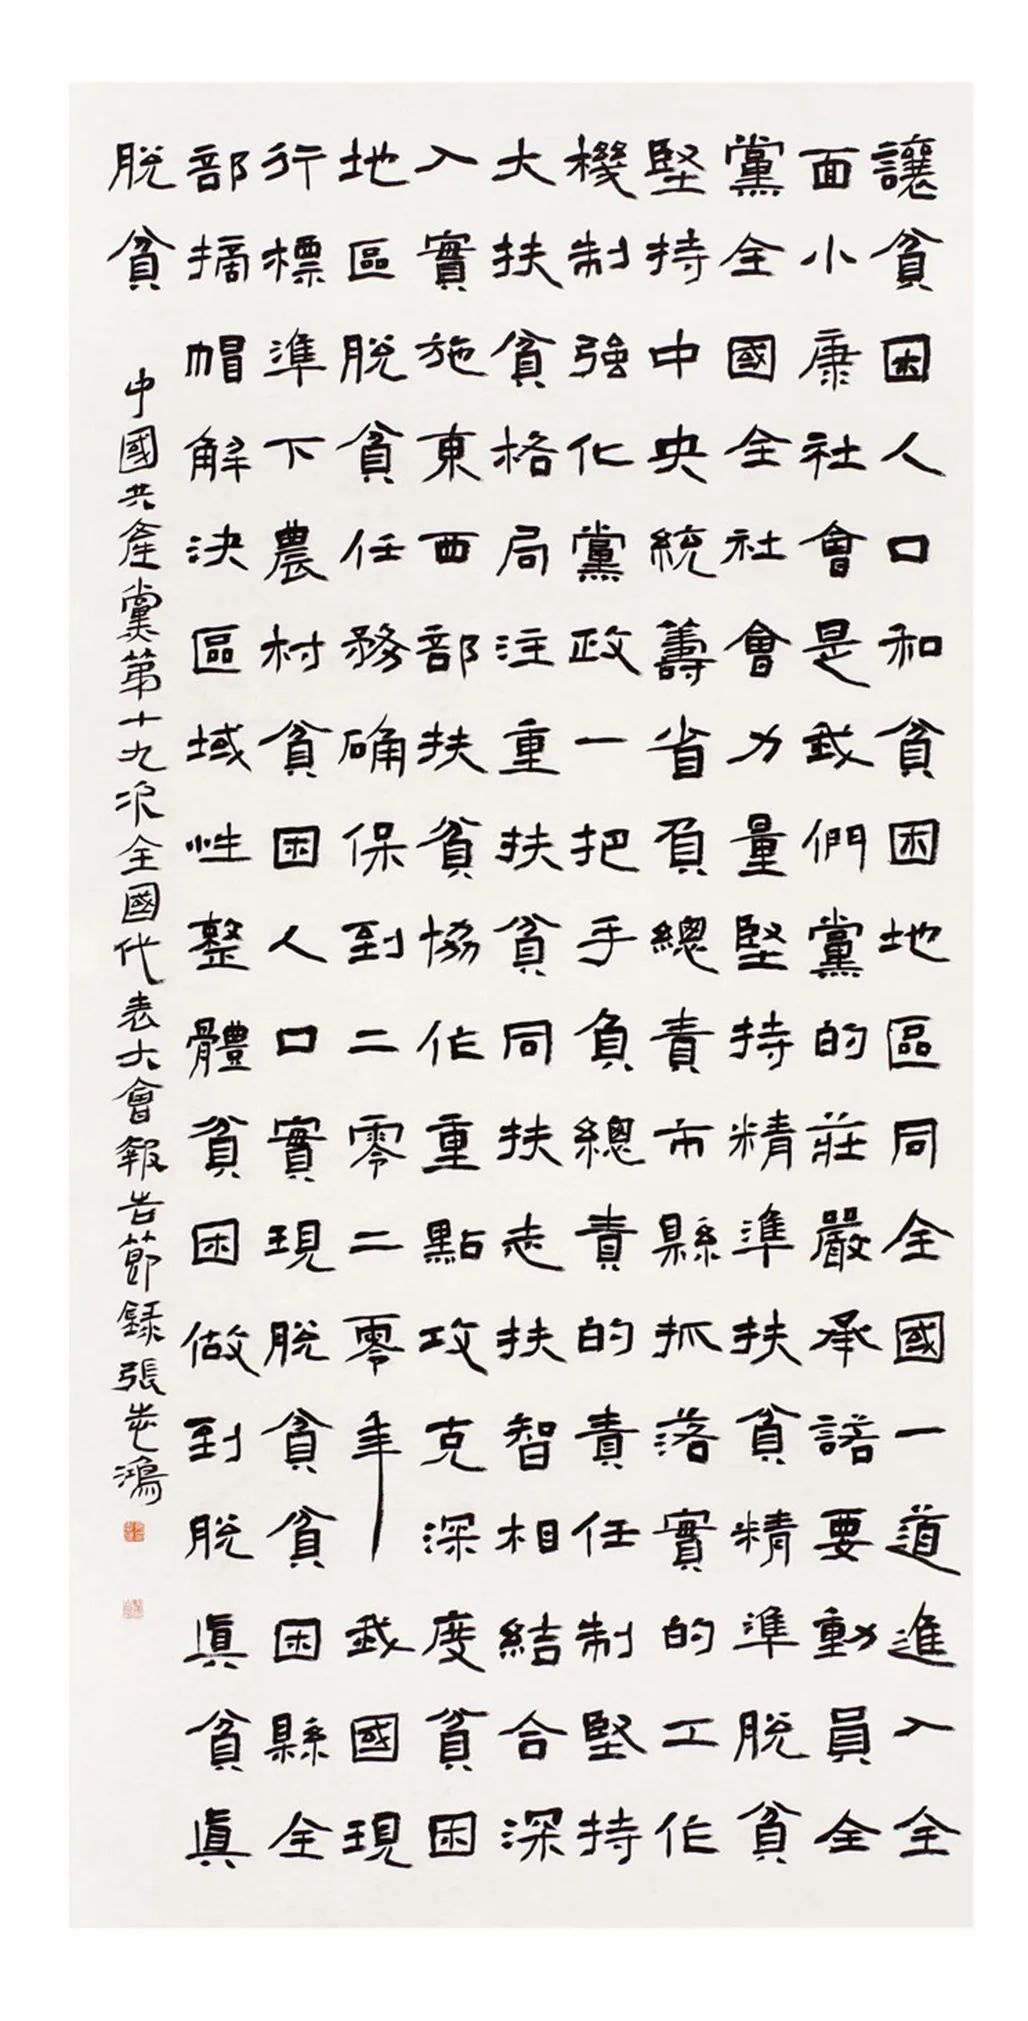 讓貧困人口和貧困地區同全國一道進入全
面小康社會是我們黨的莊嚴承諾要動員全
黨全國全社會力量堅持精準扶貧精準脫貧
堅持中央統籌省負總責市縣抓落實的工作
機制強化黨政一把手負總責的責任制堅持
大扶貧格局注重扶貧同扶志扶智相結合深
入實施東西部扶貧協作重點攻克深度貧困
地區脫貧任務确保到二零二零年我國現
行標準下農村貧困人口實現脫貧貧困縣全
部摘帽解決區域性整體貧困做到脫眞貧眞
脫貧
中國共產黨第十九次全國代表大會報告節錄張志鴻